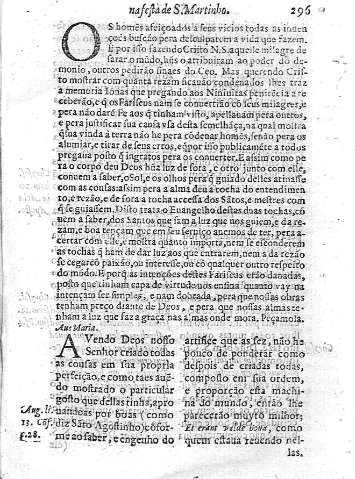 na festa de S. Martinho. 296
OS homẽs afeiçoados a seus vicios todas as inuen
çoẽs buscão pera desculparem a vida que fazem.
E por isso fazendo Cristo N. S. aquelle milagre de
sarar o mudo, hũs o atribuiram ao poder do de-
monio, outros pedirão sinaes do Ceo. Mas querendo Cris-
to mostrar com quanta rezam ficauão condenados lhes traz
a memoria como que pregando aos Niniuitas penitẽcia a re
ceberão, e q̃ os Fariseus nam se conuertião cõ seus milagres, e
pera não darẽ fe aos q̃ tinham visto, apellauam pera outros,
e pera justificar sua causa vsa desta semelhãça, na qual mostra
q̃ sua vinda â terra não he pera cõdenar homẽs, senão pera os
alumiar, e tirar de seus erros, e q̃ por isso publicamẽte a todos
pregaua posto q̃ ingratos pera os conuerter. E assim como pe
ra o corpo deu Deos hũa luz de fora, e outro junto com elle,
conuem a saber, o sol, e os olhos pera q̃ guiado delles atinasse
com as cousas: assim pera a alma deu a tocha do entendimen
to, e rezão, e de fora a tocha acessa dos Sãtos, e mestres com
q̃ se guiassem. Disto trata o Euangelho destas duas tochas, cõ
uem a saber, dos Santos que sam a luz que nos guiem, e da re-
zam, e boa tençam que em seu seruiço auemos de ter, pera a-
certar com elle, e mostra quanto importa, nem se esconderem
as tochas q̃ ham de dar luz aos que entrarem, nem a da rezão
se cegar cõ paixão, ou interesse, ou cõ qualquer outro respeito
do mũdo. E porq̃ as intenções destes Fariseus erão danadas,
posto que tinham capa de virtude nos ensina quanto vay na
intençam ser simples, e nam dobrada, pera que nossas obras
tenham preço diante de Deos, e pera que nossas almas te-
nham a luz que faz a graça nas almas onde mora. Peçamola.
Aue Maria.
AVendo Deos nosso
Senhor criado todas
as cousas em sua propria
perfeição, e como taes auẽ-
do mostrado o particular
gosto que dellas tinha, apro
Aug. li. uandoas por boas (como
13. Cõf. diz Santo Agostinho) cõfor-
c.28. me ao saber, e engenho do
artifice que as fez, não he
pouco de ponderar como
despois de criadas todas,
composto em sua ordem,
e proporção esta machi-
na do mundo, então lhe
parecerão muyto milhor;
Et erant valde bona, como
quem estaua reuendo nel-
las,